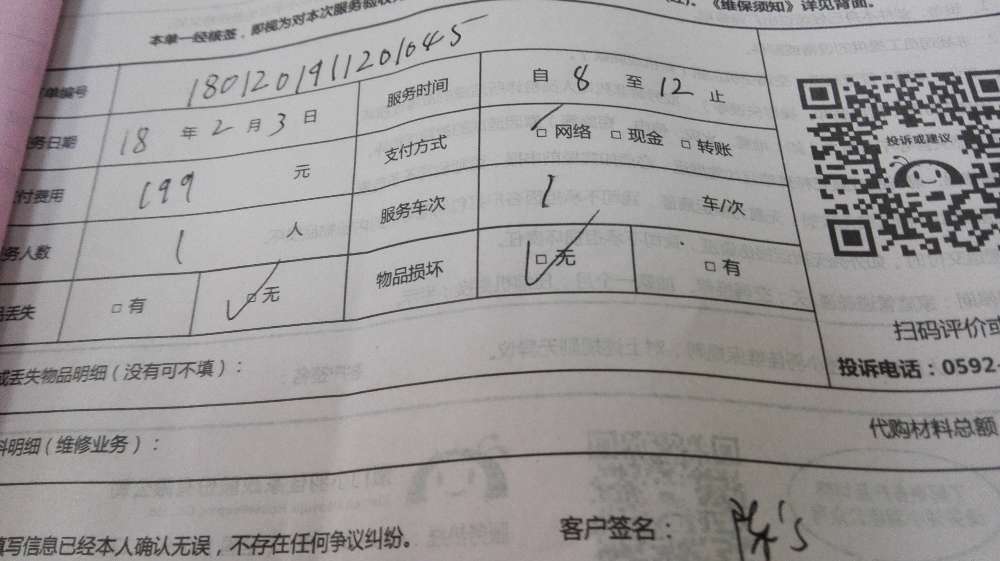 本单一经核签，即视为对本次服务验收
《维保须知》详见背面。
单编号 1801201911201045 服务时间 自 8 至 12 止
务日期 18 年 2 月 3 日 支付方式 □ 网络 □ 现金 □ 转账
付费用 199 元 服务车次 1 车/次
务人数 1 人 物品损坏 □ 无 □ 有
丢失 □ 有 □ 无
投诉或建议
扫码评价或
投诉电话：0592-
或丢失物品明细（没有可不填）：
料明细（维修业务）： 代购材料总额
填写信息已经本人确认无误，不存在任何争议纠纷。 客户签名：